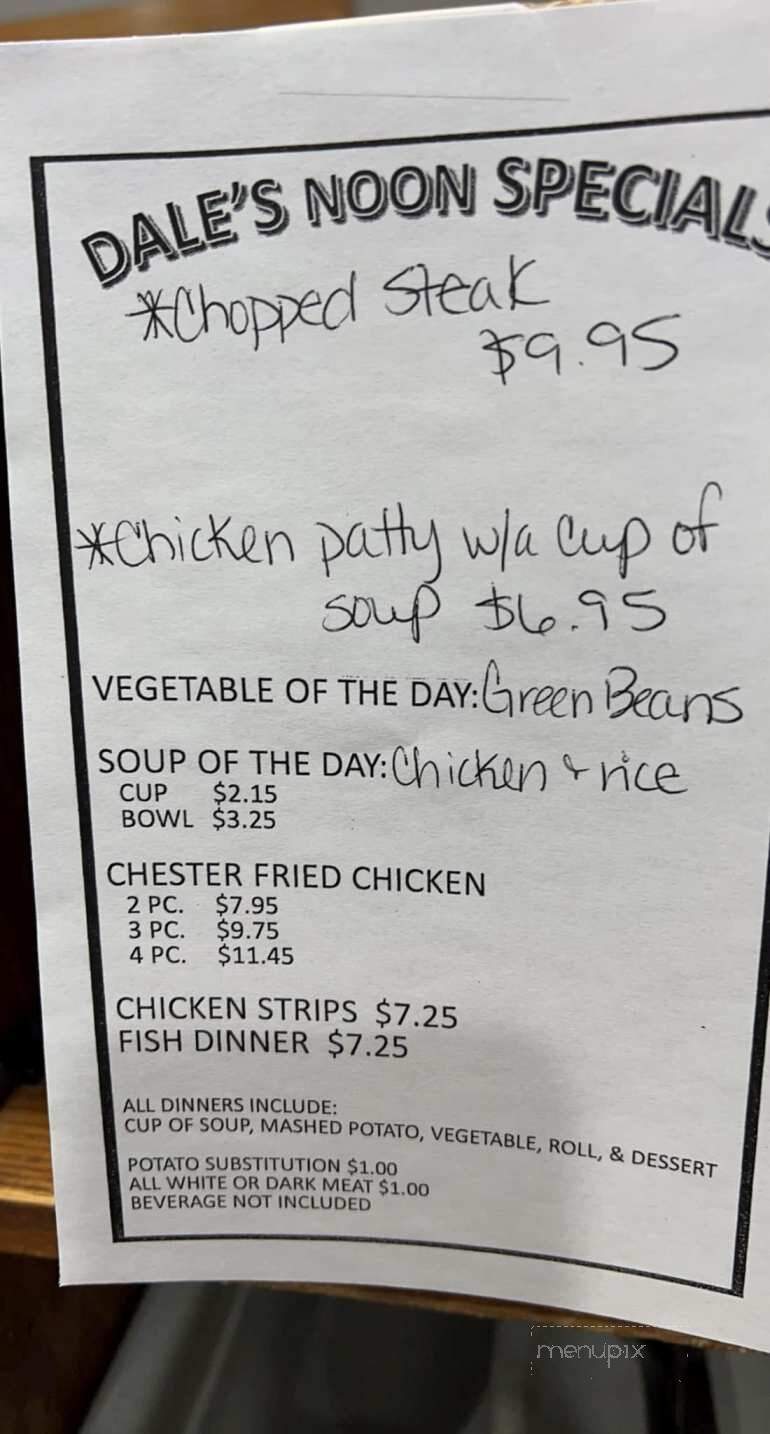 DALE'S NOON SPECIALS
*Chopped Steak
$9.95
*Chicken patty w/a cup of
soup $6.95
VEGETABLE OF THE DAY: Green Beans
SOUP OF THE DAY: Chicken & rice
CUP $2.15
BOWL $3.25
CHESTER FRIED CHICKEN
2 PC. $7.95
3 PC. $9.75
4 PC. $11.45
CHICKEN STRIPS $7.25
FISH DINNER $7.25
ALL DINNERS INCLUDE:
CUP OF SOUP, MASHED POTATO, VEGETABLE, ROLL, & DESSERT
POTATO SUBSTITUTION $1.00
ALL WHITE OR DARK MEAT $1.00
BEVERAGE NOT INCLUDED
menupix